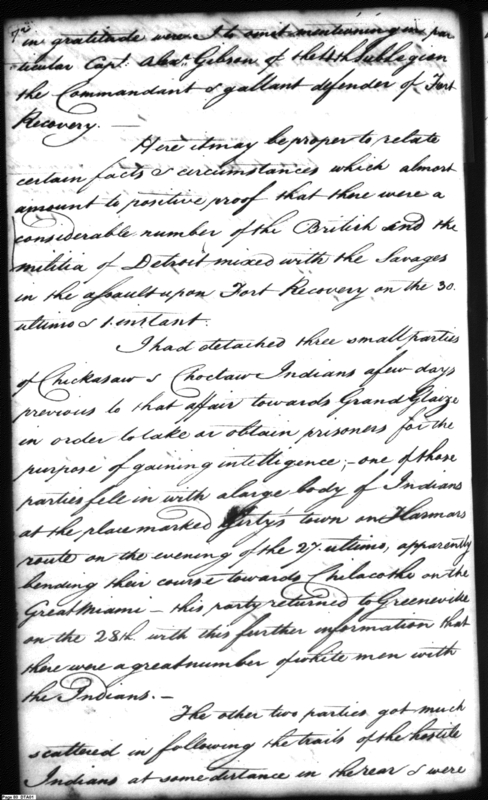 in gratitude were I to omit mentioning in par
ticular Capt. Alexr. Gibson of the 4th Sub Legion
the Commandant & gallant defender of Fort
Recovery. —
Here it may be proper to relate
certain facts & circumstances which almost
amount to positive proof that there were a
considerable number of the British and the
militia of Detroit mixed with the Savages
in the assault upon Fort Recovery on the 30.
ultimo & 1. instant.
I had detached three small parties
of Chickasaw & Choctaw Indians a few days
previous to that affair towards Grand Glaize
in order to take or obtain prisoners for the
purpose of gaining intelligence; — one of those
parties fell in with a large body of Indians
at the place marked Girty's town on Harmars
route on the evening of the 27. ultimo, apparently
bending their course towards Chilacothe on the
Great Miami — this party returned to Greeneville
on the 28th. with this further information that
there were a great number of white men with
the Indians. —
The other two parties got much
scattered in following the trails of the hostile
Indians at some distance in the rear & were